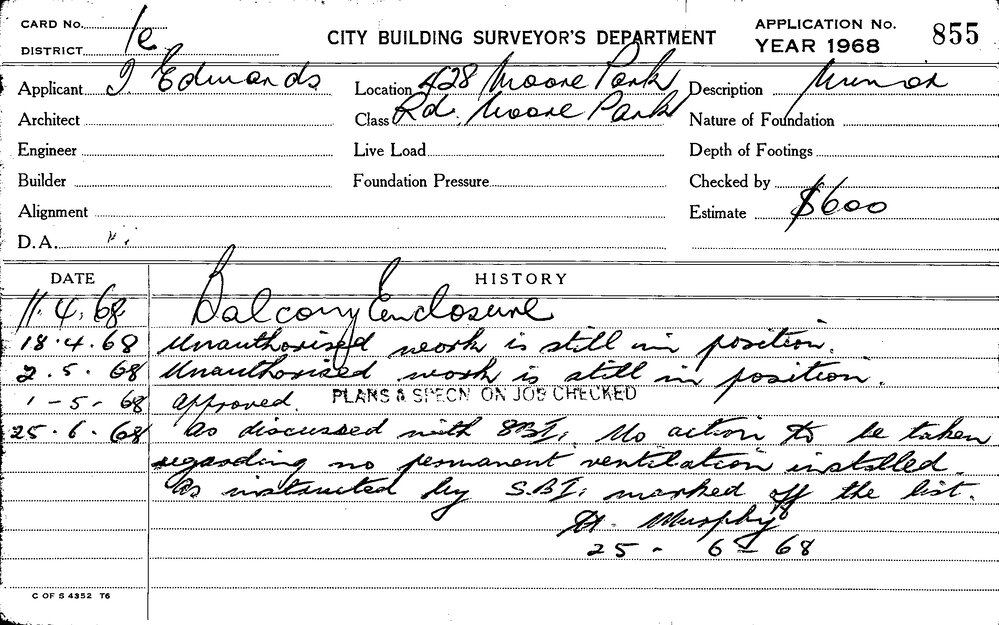 CARD No. 1e
DISTRICT
CITY BUILDING SURVEYOR'S DEPARTMENT
APPLICATION No. 855
YEAR 1968
Applicant J. Edwards
Location 428 Moore Park
Description Minor
Architect
Class Rd. Moore Park
Nature of Foundation
Engineer
Live Load
Depth of Footings
Builder
Foundation Pressure
Checked by
Alignment
Estimate $600
D.A.
DATE HISTORY
11.4.68 Balcony Enclosure
18.4.68 Unauthorised work is still in position.
2.5.68 Unauthorised work is still in position.
1-5-68 Approved. PLANS & SPECN ON JOB CHECKED
25.6.68 As discussed with SBI. No action to be taken
regarding no permanent ventilation installed.
As instructed by S.B.I. marked off the list.
H. Murphy
25-6-68
C OF S 4352 T6